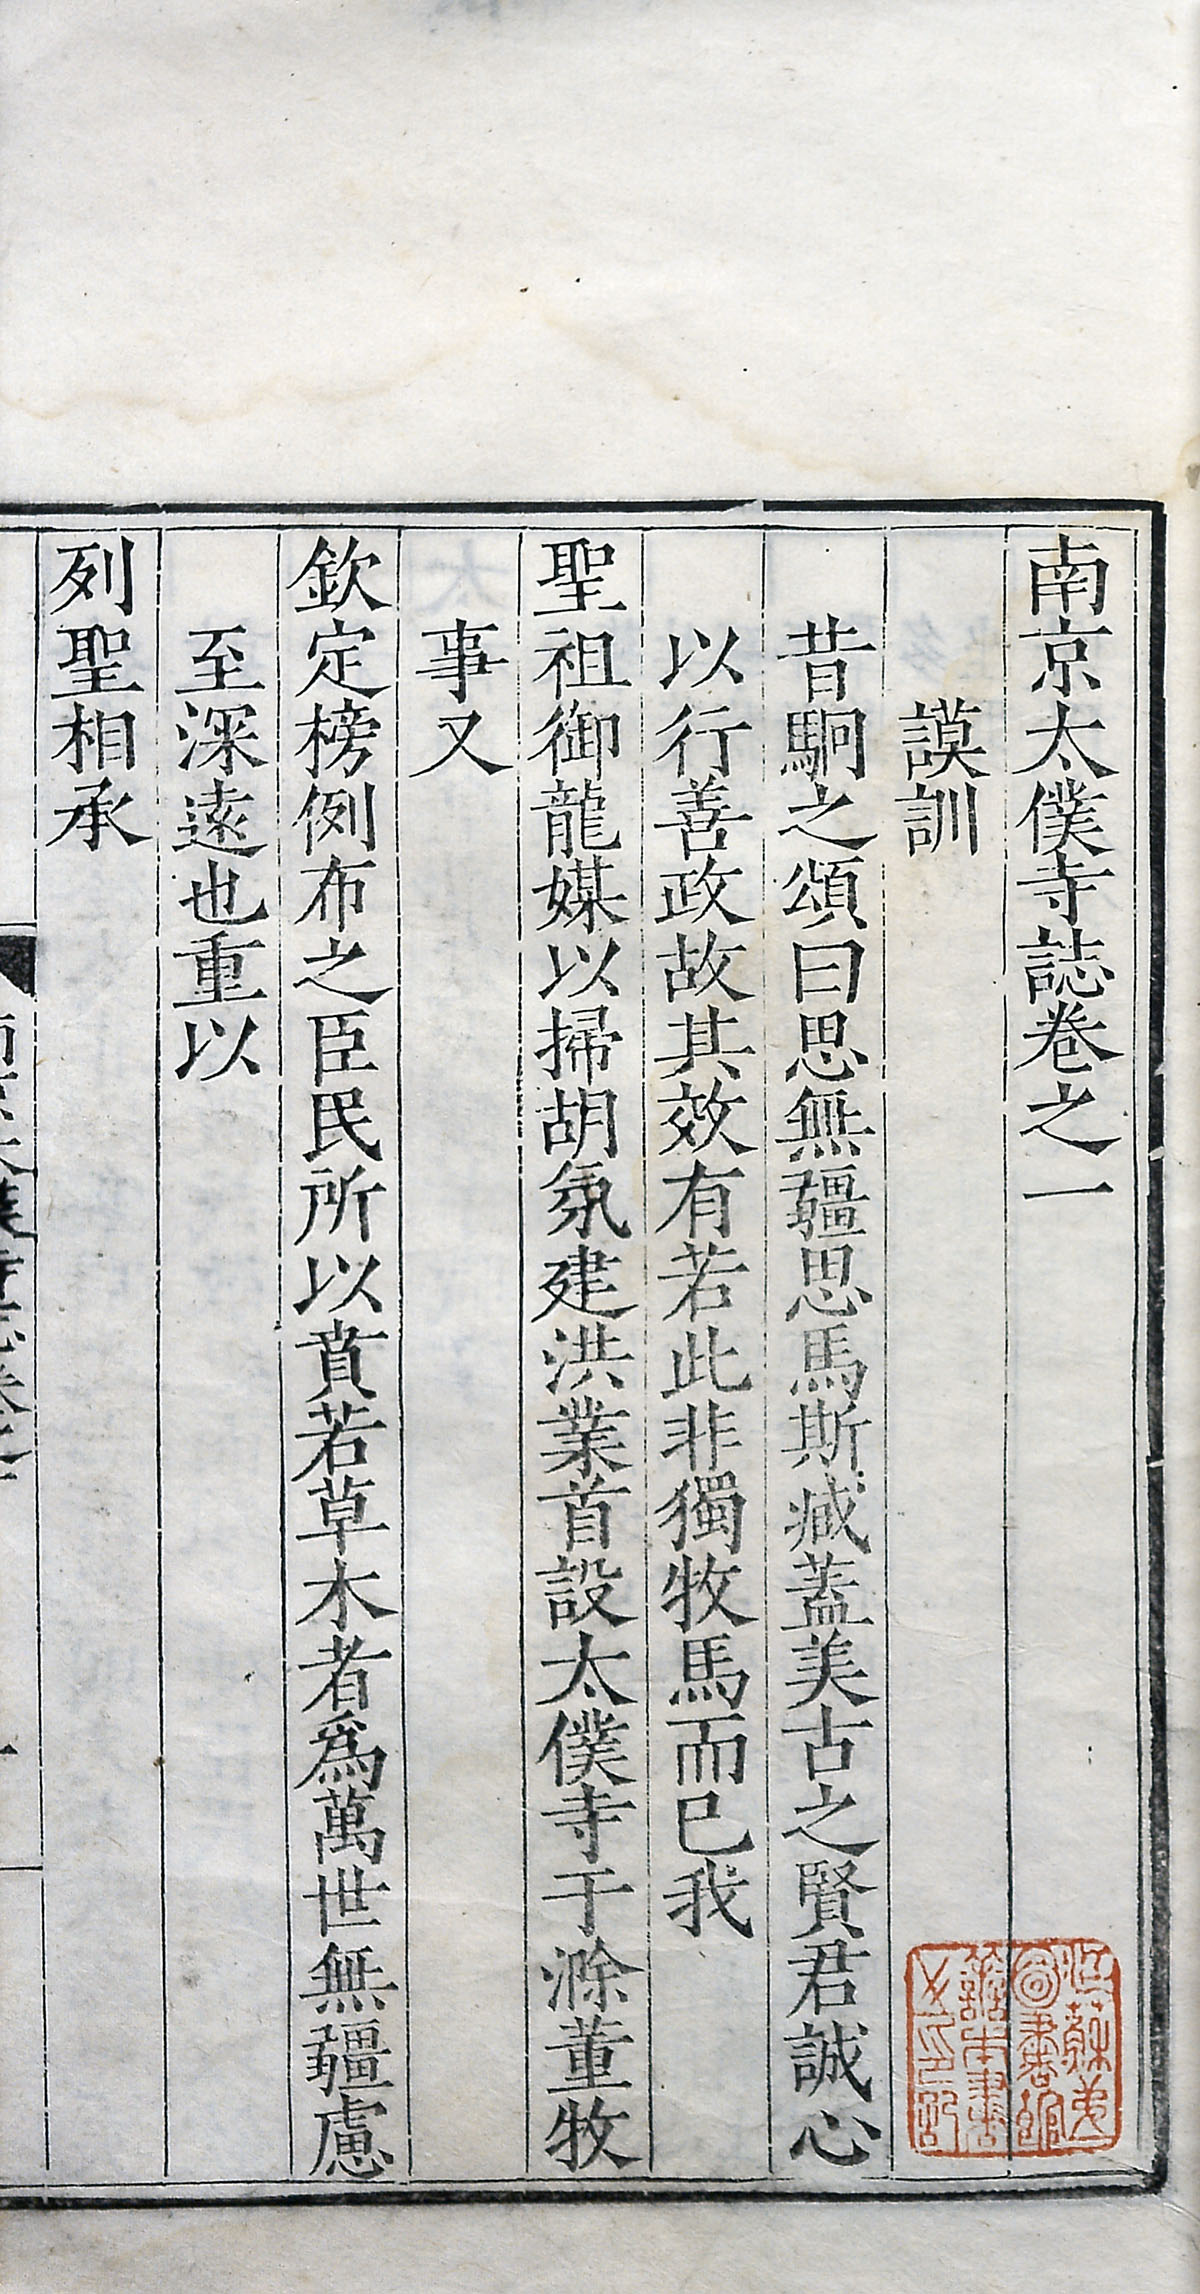 南京太僕寺誌卷之一
謨訓
昔駉之頌曰思無疆思馬斯臧蓋美古之賢君誠心
以行善政故其效有若此非獨牧馬而已我
聖祖御龍媒以掃胡氛建洪業首設太僕寺于滁董牧
事又
欽定榜例布之臣民所以賁若草木者爲萬世無疆慮
至深遠也重以
列聖相承
江蘇第一
圖書館
善本書
之印記